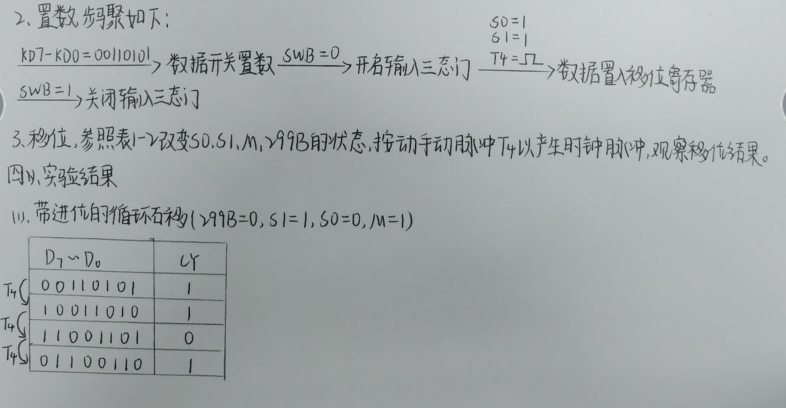 2、置数步骤如下:
KD7-KD0=00110101 → 数据开关置数 SWB=0 → 开启输入三态门 S0=1 S1=1 T4=⎍ → 数据置入移位寄存器
SWB=1 → 关闭输入三态门
3、移位,参照表1-2改变S0、S1、M、299B的状态,按动手动脉冲T4以产生时钟脉冲,观察移位结果。
四、实验结果
(1)、带进位的循环右移(299B=0, S1=1, S0=0, M=1)
D7~D0 CY
T4 00110101 1
T4 10011010 1
T4 11001101 0
01100110 1